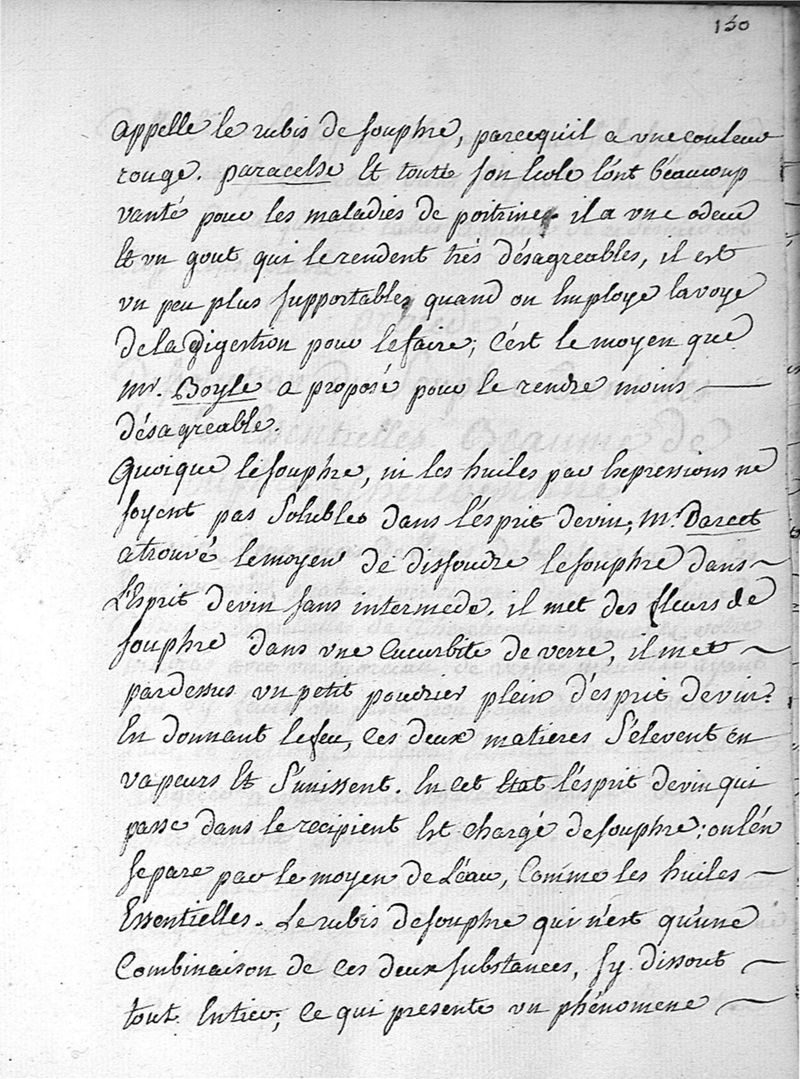 150
appelle le rubis de souphre, parcequil a vne couleur
rouge. paracelse et toutte son Ecole l'ont béaucoup
vanté pour les maladies de poitrine, il a vne odeur
Et vn gout qui le rendent trés désagreables, il est
vn peu plus supportable, quand on Employe la voye
de la digestion pour le faire; C'est le moyen que
Mr. Boyle a proposé pour le rendre moins —
désagreable.
Quoique lé souphre, ni les huiles par Expressions ne
soyent pas Solubles dans l'ésprit de vin, Mr. Darcet
a trouvé le moyen de dissoudre le souphre dans —
L'Esprit de vin sans intermede. il met des fleurs de
souphre dans vne Cucurbite de verre, il met —
pardessus vn petit poudrier plein d'ésprit de vin.
En donnant le feu, Ces deux matieres S'élevent en
vapeurs Et S'unissent. En cet Etat l'ésprit de vin qui
passe dans le recipient Est chargé de souphre; on l'én
separe par le moyen de L'éau, Comme les huiles —
Essentielles. Le rubis de souphre qui n'est qu'une
Combinaison de Ces deux substances, s'y dissout —
tout Entier, Ce qui presente vn phénomene —